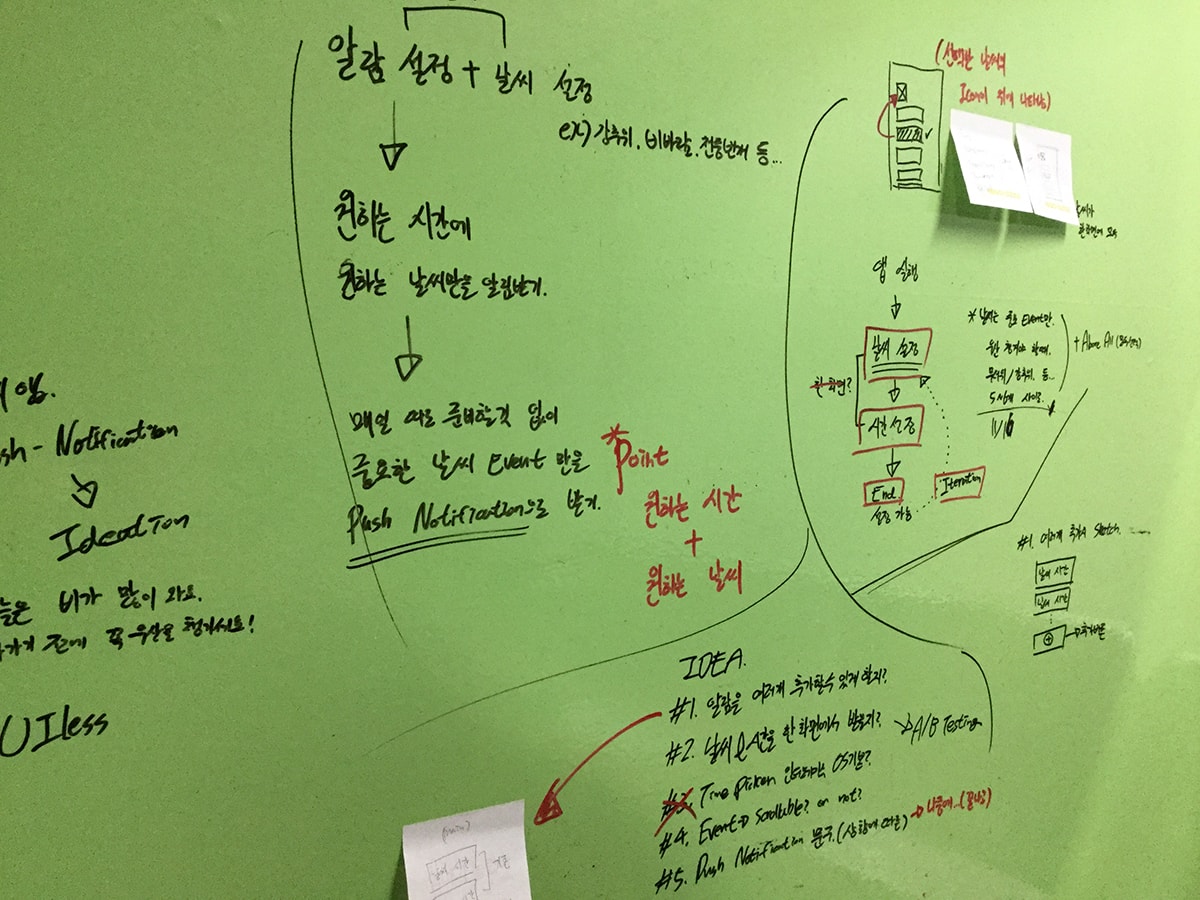 알람 설정 + 날씨 설정
ex) 강추위, 비바람, 천둥번개 등...
원하는 시간에
원하는 날씨만을 알림받기.
매일 따로 준비할것 없이
중요한 날씨 Event 만을
Push Notification으로 받기.
*Point
원하는 시간
+
원하는 날씨
앱.
Notification
Ideation
비가 많이 와요.
전에 꼭 우산을 챙기세요!
UIless
(선택한 날씨의
Icon이 위에 나타남)
날씨가
한화면에 모두
앱 실행
날씨 설정
한 화면?
시간 설정
End
설정 가능
Iteration
* 날씨는 중요 Event만.
무더위/강추위, 등..
5
+ Above All
11/16
#1. 여러개 추가시 Sketch.
날씨 시간
날씨 시간
추가버튼
IDEA.
#1. 알람을 여러개 추가할수 있게 할지?
#2. 날씨 & 시간을 한 화면에서 받을지? → A/B Testing
#3. Time Picker OS기본?
#4. Event → Scrollable? or not?
#5. Push Notification 문구.(상황에 따른) → 나중에..
(main)
날씨 시간